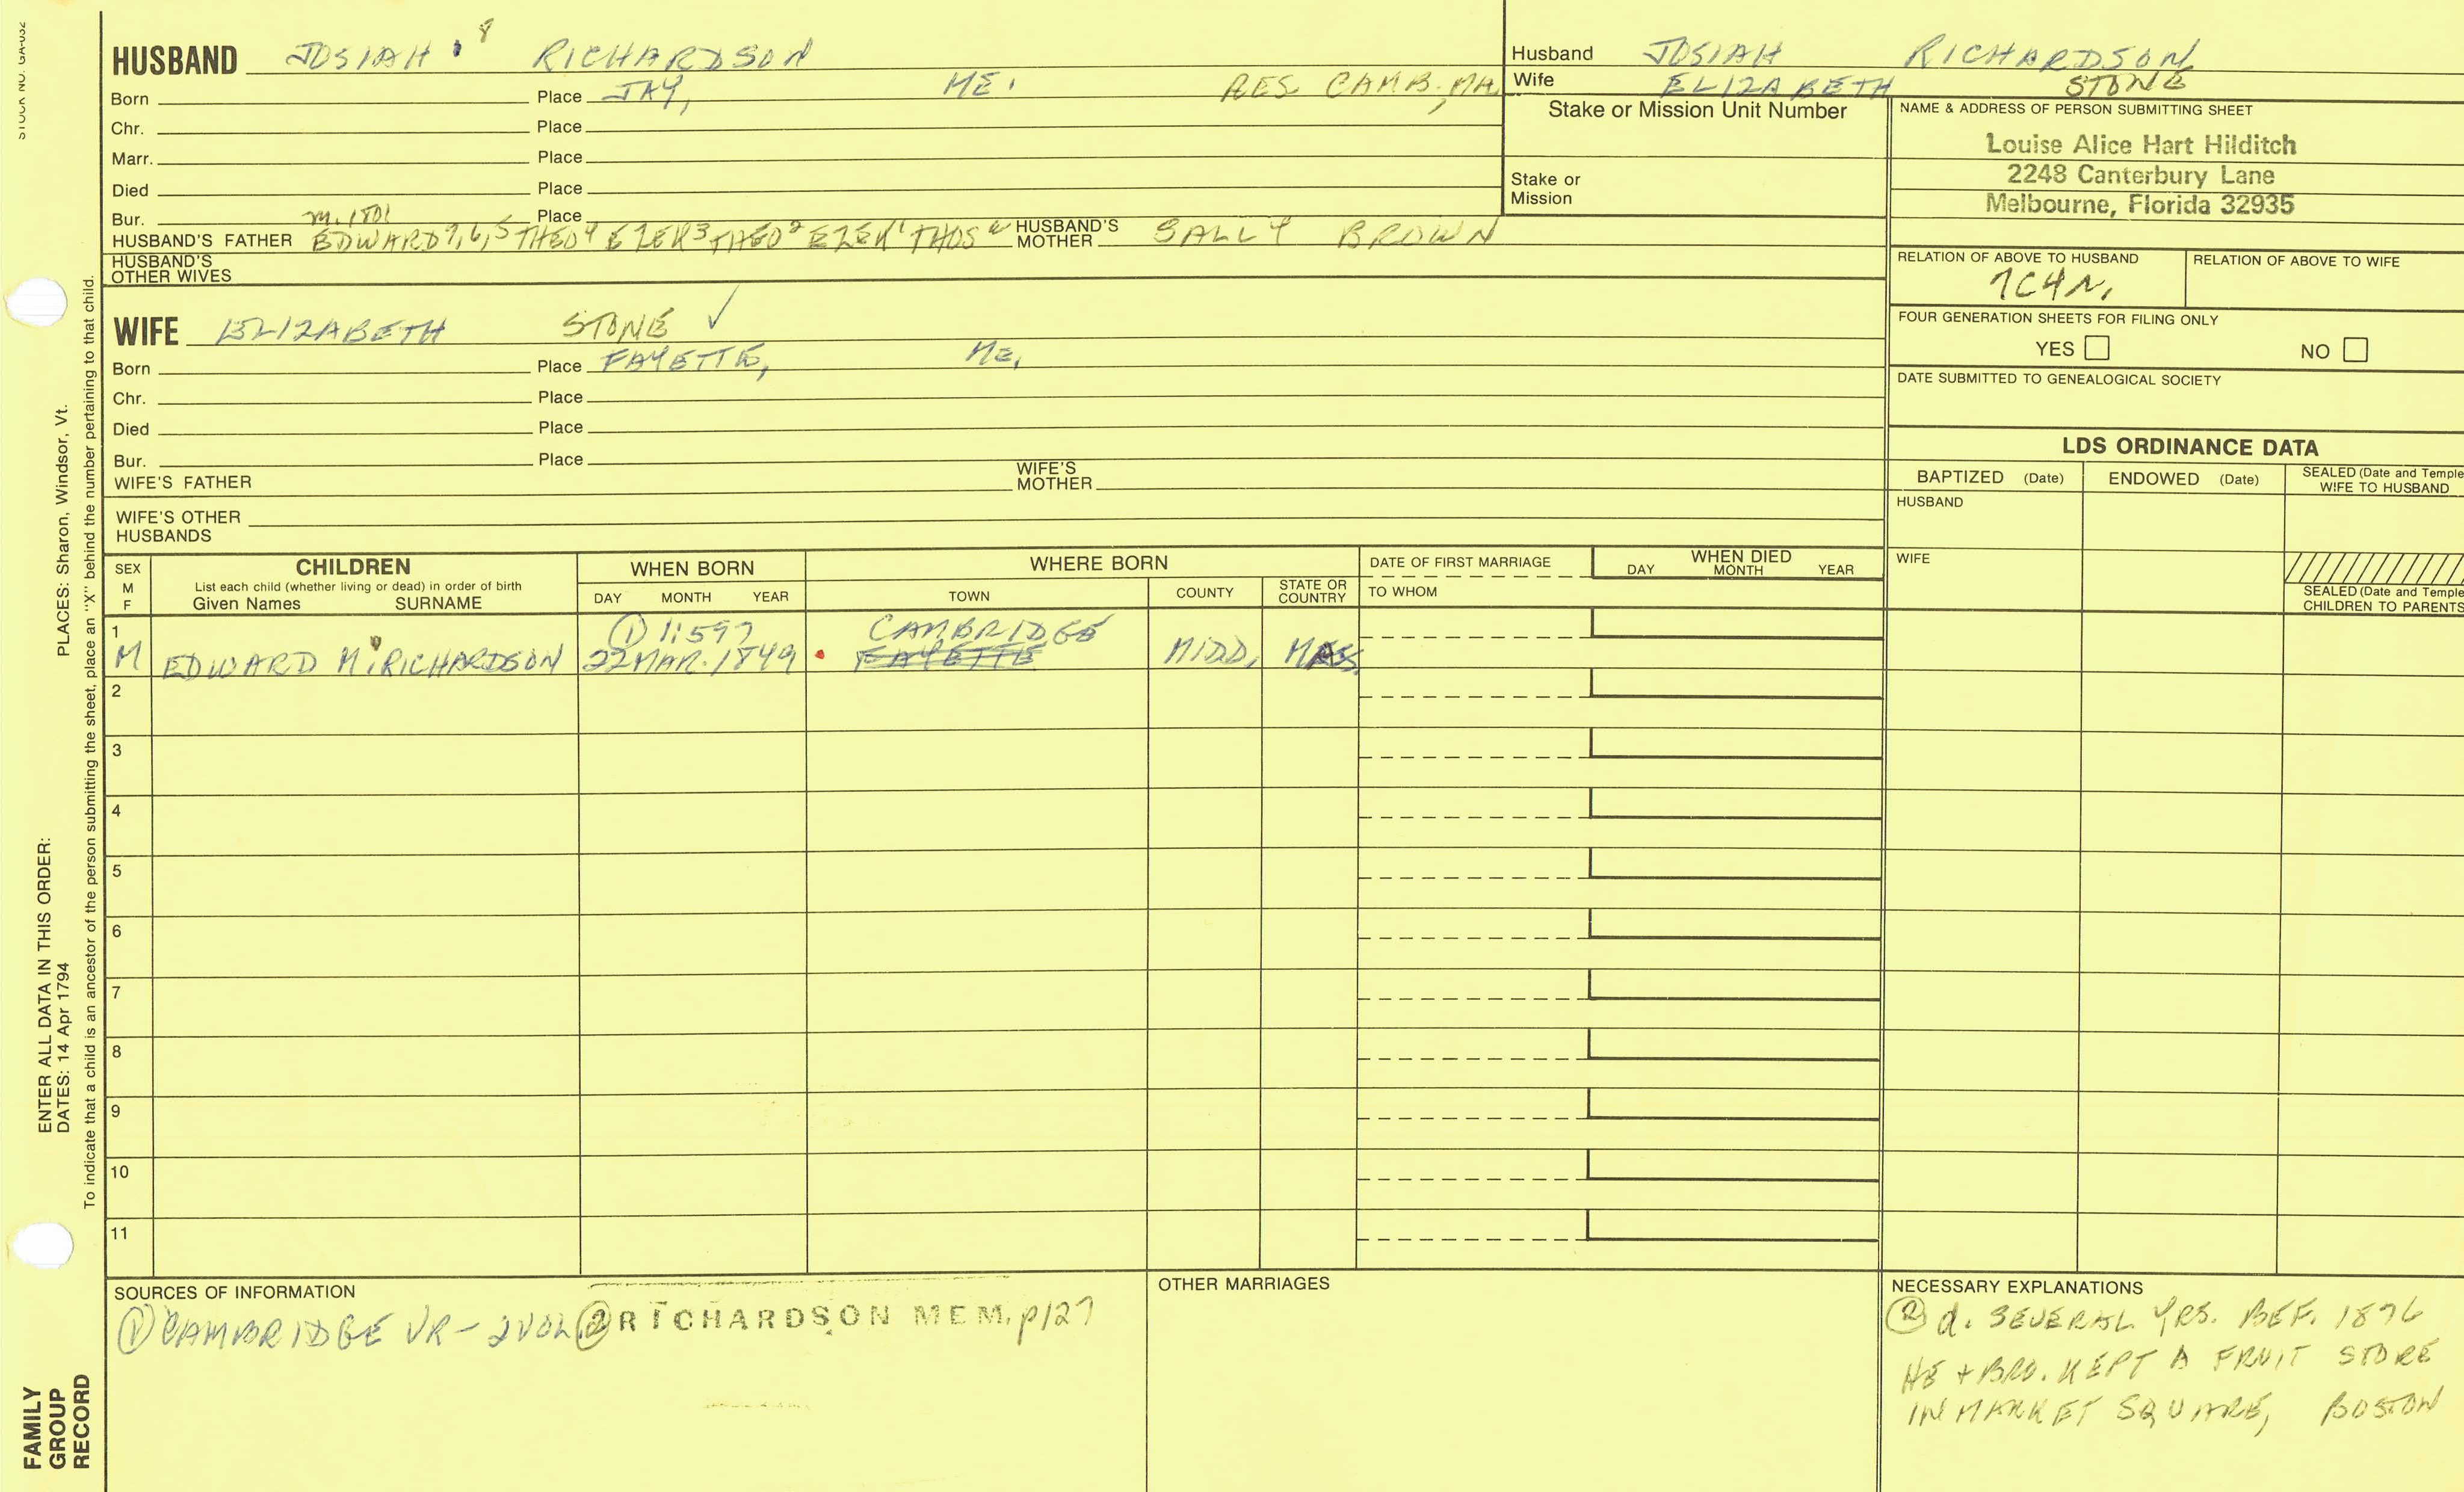 STOCK NO. GA-032
HUSBAND JOSIAH 8 RICHARDSON
Born Place JAY, ME. RES. CAMB., MA.
Chr. Place
Marr. Place
Died Place
Bur. Place
m. 1801
HUSBAND'S FATHER EDWARD 7,6,5 THEO 4 EZEK 3 THEO 2 EZEK 1 THOS HUSBAND'S MOTHER SALLY BROWN
HUSBAND'S OTHER WIVES
WIFE ELIZABETH STONE ✓
Born Place FAYETTE, ME.
Chr. Place
Died Place
Bur. Place
WIFE'S FATHER WIFE'S MOTHER
WIFE'S OTHER HUSBANDS
Husband JOSIAH RICHARDSON
Wife ELIZABETH STONE
Stake or Mission Unit Number
Stake or Mission
NAME & ADDRESS OF PERSON SUBMITTING SHEET
Louise Alice Hart Hilditch
2248 Canterbury Lane
Melbourne, Florida 32935
RELATION OF ABOVE TO HUSBAND RELATION OF ABOVE TO WIFE
7C4R.
FOUR GENERATION SHEETS FOR FILING ONLY
YES NO
DATE SUBMITTED TO GENEALOGICAL SOCIETY
LDS ORDINANCE DATA
BAPTIZED (Date) ENDOWED (Date) SEALED (Date and Temple) WIFE TO HUSBAND
HUSBAND
WIFE
SEALED (Date and Temple) CHILDREN TO PARENTS
SEX M F
CHILDREN
List each child (whether living or dead) in order of birth
Given Names SURNAME
WHEN BORN
DAY MONTH YEAR
WHERE BORN
TOWN COUNTY STATE OR COUNTRY
DATE OF FIRST MARRIAGE
TO WHOM
WHEN DIED
DAY MONTH YEAR
1 ① 1:597 CAMBRIDGE
M EDWARD M. RICHARDSON 22 MAR. 1849 FAYETTE MIDD. MASS
2
3
4
5
6
7
8
9
10
11
SOURCES OF INFORMATION
① CAMBRIDGE VR - 2 VOL ② RICHARDSON MEM. p127
OTHER MARRIAGES
NECESSARY EXPLANATIONS
② d. SEVERAL YRS. BEF. 1876
HE + BRO. KEPT A FRUIT STORE
IN MARKET SQUARE, BOSTON
ENTER ALL DATA IN THIS ORDER:
DATES: 14 Apr 1794
PLACES: Sharon, Windsor, Vt.
To indicate that a child is an ancestor of the person submitting the sheet, place an "X" behind the number pertaining to that child.
FAMILY
GROUP
RECORD